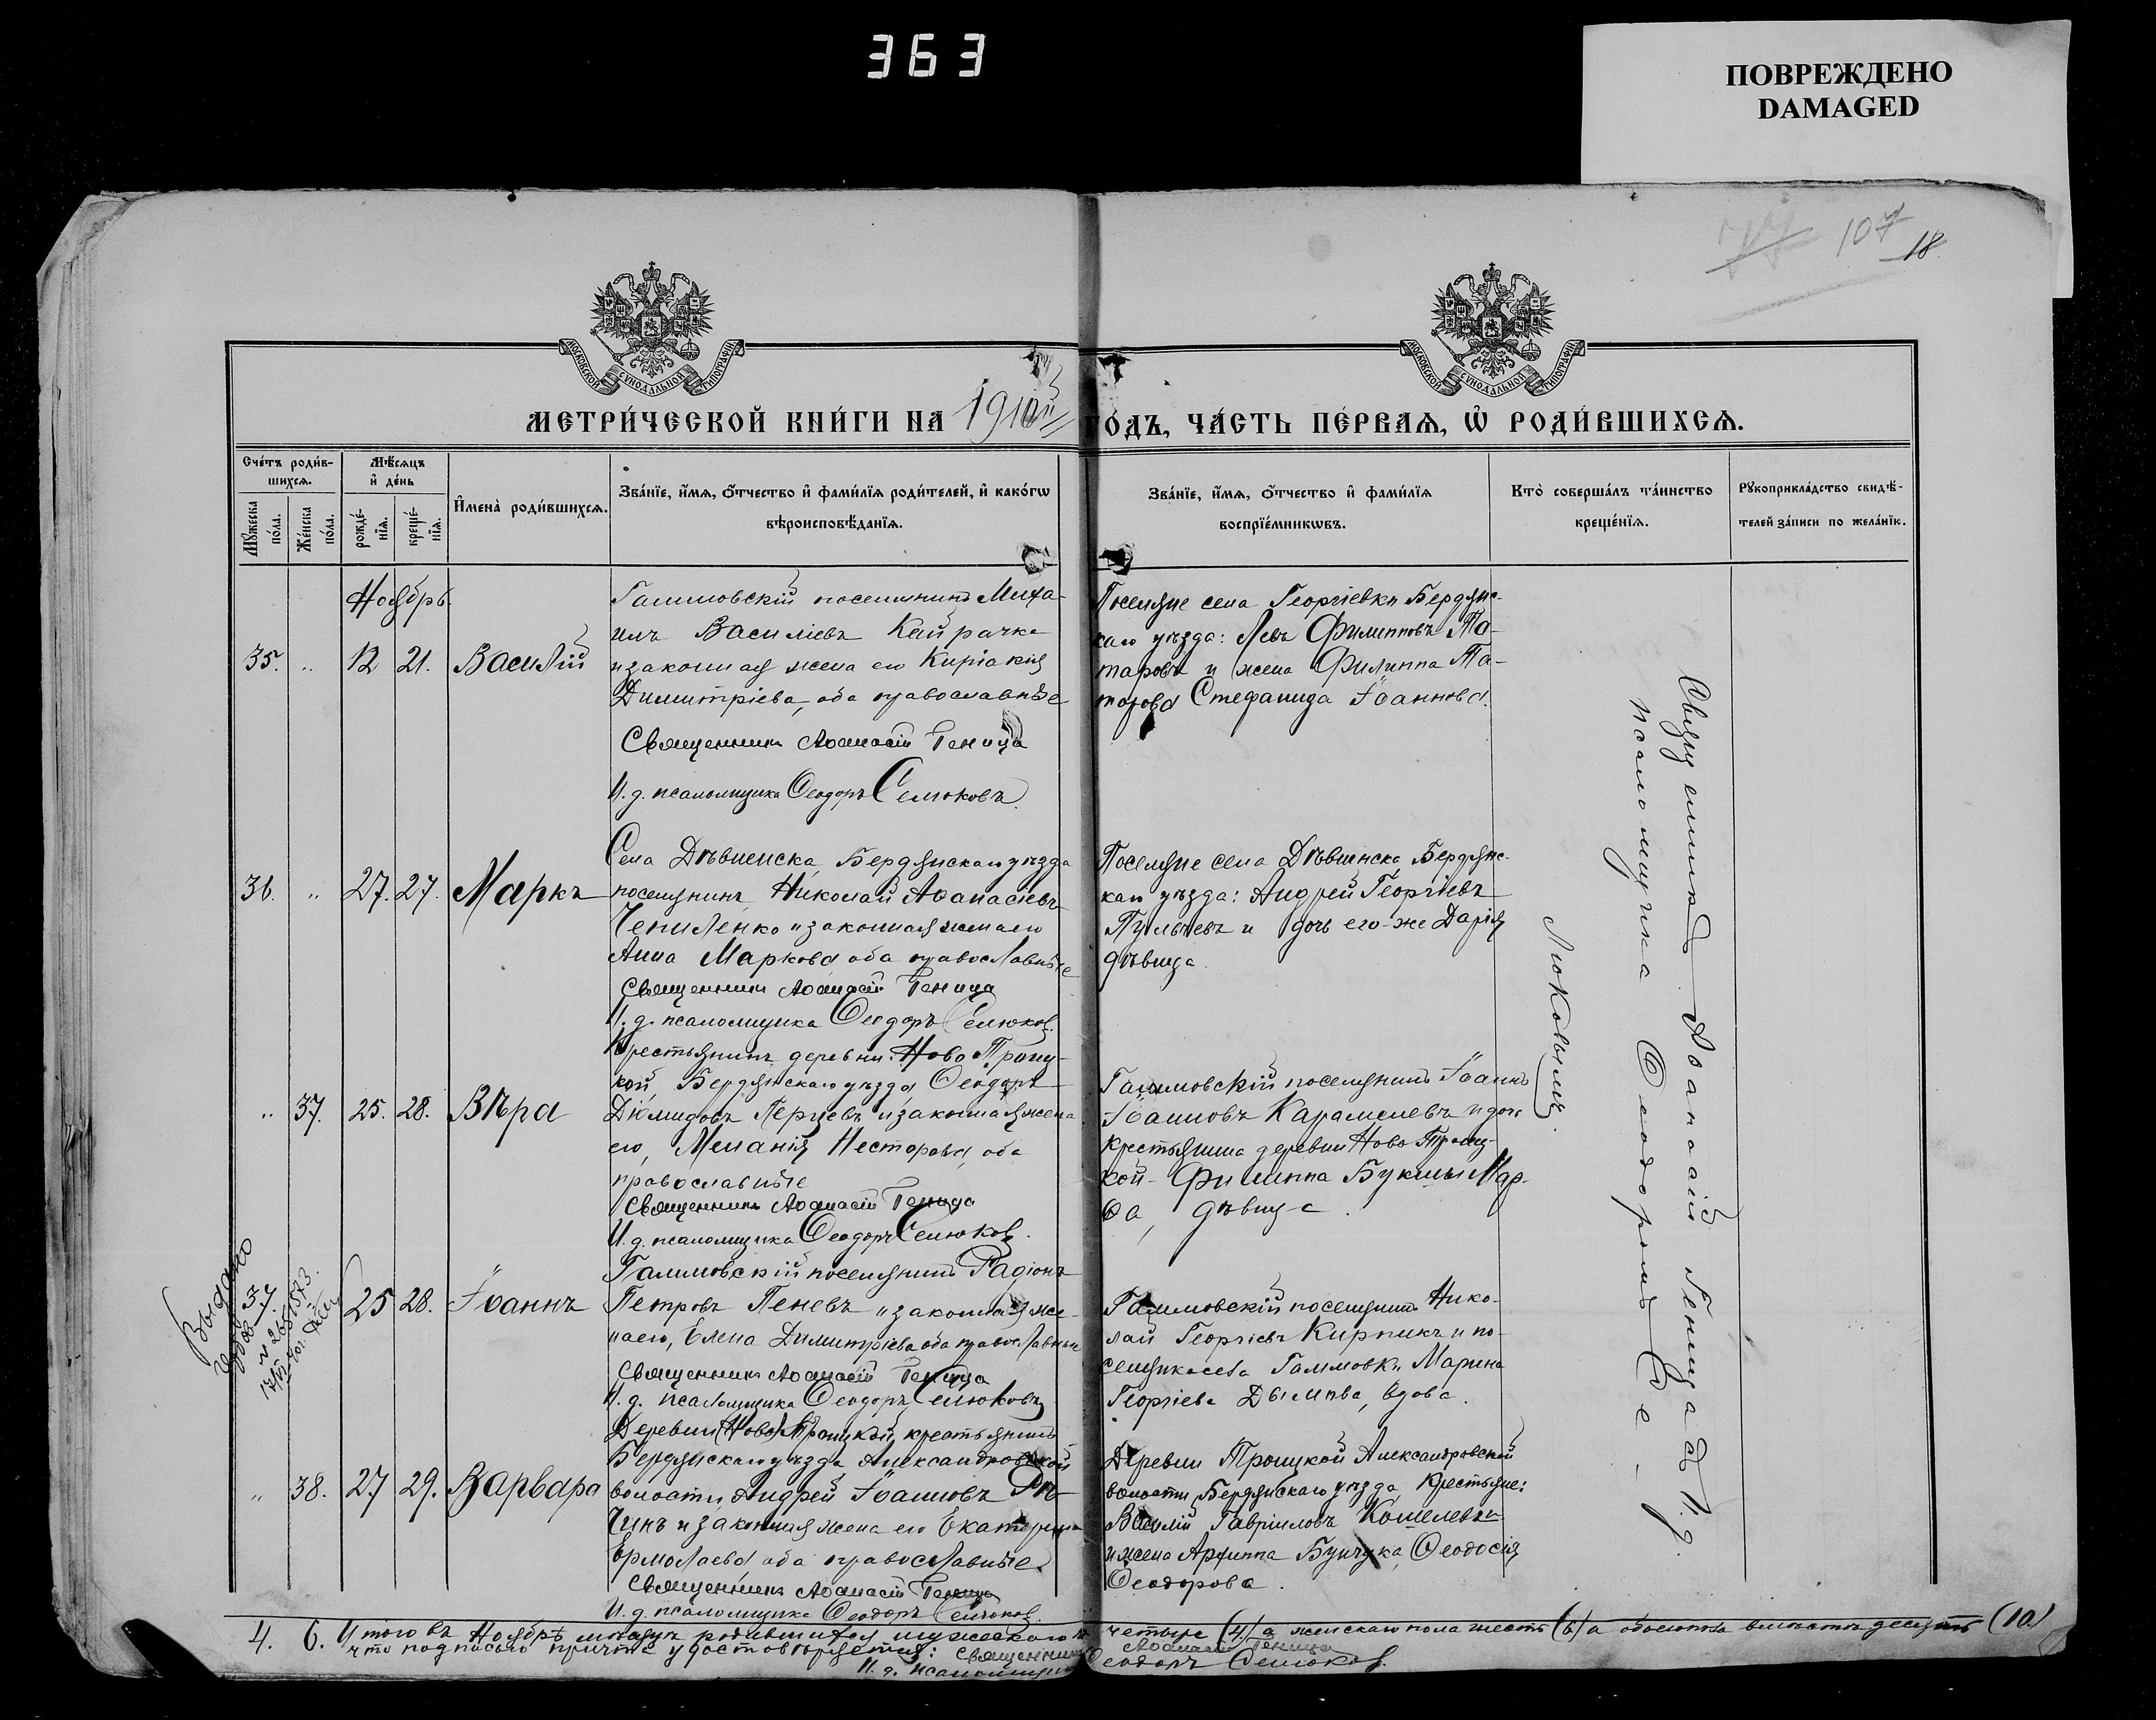 363
ПОВРЕЖДЕНО
DAMAGED
77 107
18
МОСКОВСКОЙ СѴНОДАЛЬНОЙ ТИПОГРАФІИ
МОСКОВСКОЙ СѴНОДАЛЬНОЙ ТИПОГРАФІИ
МЕТРИ́ЧЕСКОЙ КНИ́ГИ НА 1910й ГОДЪ, ЧА́СТЬ ПЕ́РВАѦ, Ѽ РОДИ́ВШИХСѦ.
Сче́тъ роди́в-
шихсѧ.
Мꙋ́жеска по́ла.
Же́нска по́ла.
Мѣ́сѧцъ
и҆ де́нь
рожде́-
нїѧ.
креще́-
нїѧ.
И҆мена̀ роди́вшихсѧ.
Зва́нїе, и҆́мѧ, ѻ҆́тчество и҆ фами́лїѧ роди́телей, и҆ како́гѡ
вѣроисповѣ́данїѧ.
Зва́нїе, и҆́мѧ, ѻ҆́тчество и҆ фами́лїѧ
воспрїе́мникѡвъ.
Кто̀ соверша́лъ та́инство
креще́нїѧ.
Рꙋкоприкла́дство свидѣ́-
телей за́писи по жела́нїю.
Ноябрь.
35. " 12 21. Василій
Галимовскій поселянинъ Миха-
илъ Василіевъ Кайрачка
и законная жена его Киріакія
Димитріева, оба православные
Священникъ Аѳанасій Геница
И. д. псаломщика Ѳеодоръ Селюковъ.
Поселяне села Георгіевки Бердянс-
каго уѣзда: Левъ Филипповъ Та-
таровъ и жена Филиппа Та-
тарова Стефанида Іоаннова.
36. " 27. 27. Маркъ
Села Дѣвненска, Бердянскаго уѣзда
поселянинъ Николай Аѳанасіевъ
Чепиленко и законная жена его
Анна Маркова оба православные
Священникъ Аѳанасій Геница
И. д. псаломщика Ѳеодоръ Селюковъ.
Поселяне села Дѣвненска, Бердянс-
каго уѣзда: Андрей Георгіевъ
и дочь его-же Дарія
дѣвица.
" 37. 25. 28. Вѣра
Крестьянинъ деревни Ново Троиц-
кой, Бердянскаго уѣзда, Ѳеодоръ
Діомидовъ Перцевъ и законная жена
его, Меланія Несторова, оба
православные
Священникъ Аѳанасій Геница
И. д. псаломщика Ѳеодоръ Селюковъ.
Галимовскій поселянинъ Іоаннъ
Іоанновъ и дочь
крестьянина деревни Ново Троиц-
кой - Филиппа Мар-
ѳа, дѣвица.
Выдано
25 28. Іоаннъ
Галимовскій поселянинъ Радіонъ
Петровъ Пеневъ и законная же-
на его, Елена Димитріева оба православные
Священникъ Аѳанасій Геница
И. д. псаломщика Ѳеодоръ Селюковъ
Галимовскій поселянинъ Нико-
лай Георгіевъ Кирпикъ и по-
селянка села Галимовки Марина
Георгіева вдова.
" 38. 27. 29. Варвара
Деревни (Ново) Троицкой, крестьянинъ
Бердянскаго уѣзда Александровской
волости, Андрей Іоанновъ Рѣ-
чинъ и законная жена его Екатерина
Ермолаева, оба православные.
Священникъ Аѳанасій Геница
И. д. псаломщика Ѳеодоръ Селюковъ.
Деревни Троицкой Александровской
волости, Бердянскаго уѣзда, Крестьяне:
Василій Гавріиловъ Кошелевъ
и жена Архиппа Бунчука, Ѳеодосія
Ѳеодорова.
Священникъ Аѳанасій Геница съ И. д.
псаломщика Ѳеодоромъ Се-
люковымъ.
4. 6. Итого въ Ноябрѣ мѣсяцѣ родившихся мужескаго четыре (4) а женскаго пола шесть (6) а обоего пола вмѣстѣ десять (10)
что подписью причта удостовѣряется: Священникъ Аѳанасій Геница
И. д. псаломщика Ѳеодоръ Селюковъ.